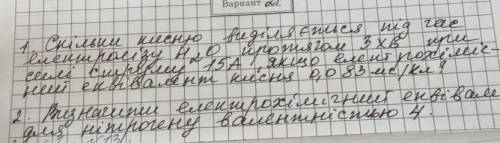 Варіант
1. Скільки кисню виділяється під час
електролізу H₂O протягом 3 хв при
силі струму 15А, якщо електрохіміч-
ний еквівалент кисня 0,083 мг/кл?
2. Визначити електрохімічний еквівале
для нітрогену валентністю 4.